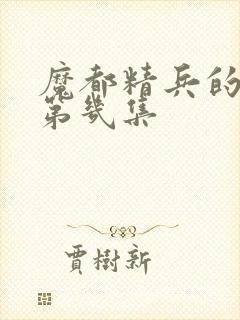 魔都精兵的
第幾集
賈樹新